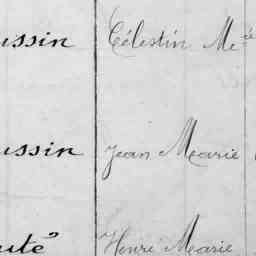 ussin Célestin Me
ussin Jean Marie
uté Henri Marie